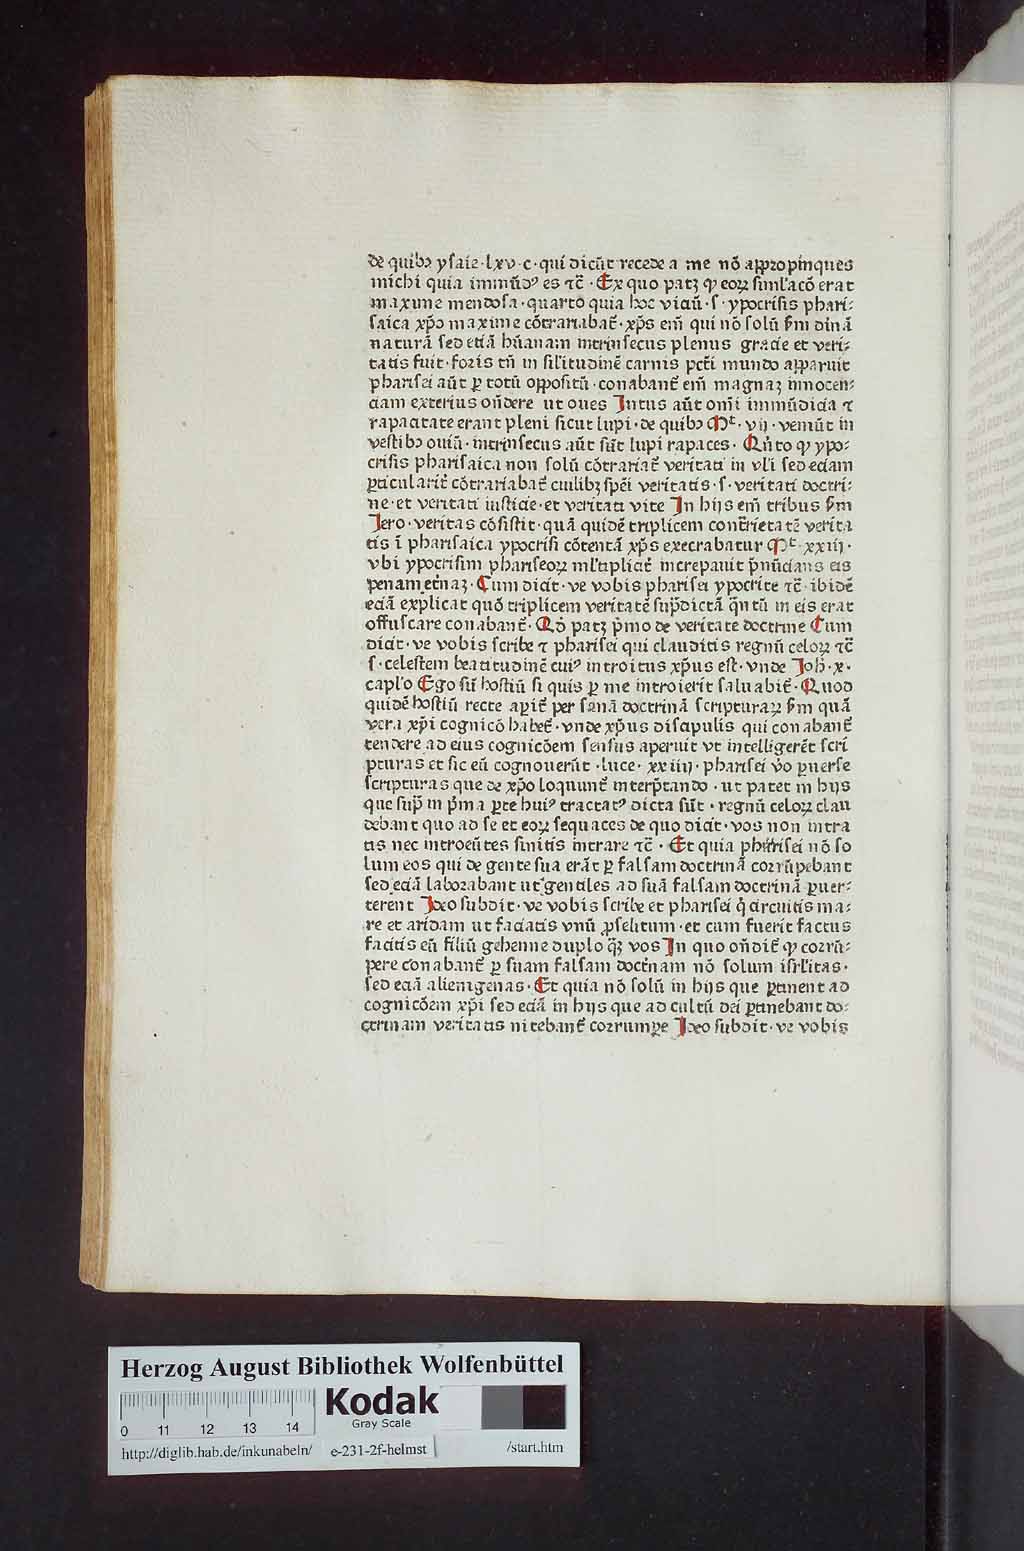 de quibꝫ ysaie·lxv·c·qui dicūt recede a me nō appropinques
michi quia immūdꝰ es ⁊c̄·Ex quo patꝫ ꝙ eoꝝ simĺacō erat
maxime mendosa·quarto quia hoc viciū·s·ypocrisis phari⸗
saica xp̄o maxime cōtrariabat᷑·xp̄s em̄ qui nō solū ẜm diīnā
naturā sed etiā hūanam intrinsecus plenus gracie et veri⸗
tatis fuit·foris tn̄ in siĺitudinē carnis pcc̄ti mundo apparuit
pharisei aūt ꝑ totū oppositū·conabant᷑ em̄ magnaꝫ innocen⸗
ciam exterius on̄dere ut oues Intus aūt omī immūdicia ⁊
rapacitate erant pleni sicut lupi·de quibꝫ Mt·vij·veniūt in
vestibꝫ ouiū·intrinsecus aūt sūt lupi rapaces·Qn̄to ꝙ ypo⸗
crisis pharisaica non solū cōtrariat᷑ veritati in vĺi sed eciam
ꝑticularit᷑ cōtrariabat᷑ cuilibꝫ spēi veritatis·s·veritati doctri⸗
ne·et veritati iusticie·et veritati vite In hijs em̄ tribus ẜm
Jero·veritas cōsistit·quā quidē triplicem cont᷑rietatē verita
tis ī pharisaica ypocrisi cōtentā xp̄s execrabatur Mt·xxiij·
vbi ypocrisim phariseoꝝ mĺtiplicit᷑ increpauit p̄nūcians eis
penam et᷑naꝫ·Cum dicit·ve vobis pharisei ypocrite ⁊c̄·ibidē
eciā explicat quō triplicem veritatē sup᷑dictā q̄ntū in eis erat
offuscare conabant᷑·Qd̄ patꝫ p̄mo de veritate doctrine Cum
dicit·ve vobis scribe ⁊ pharisei qui clauditis regnū celoꝝ ⁊c̄
s·celestem beatitudinē cuiꝰ introitus xp̄us est·vnde Joh̄·x·
capĺo Ego sū hostiū si quis ꝑ me introierit saluabit᷑·Quod
quidē hostiū recte aꝑit᷑ per sanā doctrinā scripturaꝝ ẜm quā
vera xp̄i cognicō habet᷑·vnde xp̄us discipulis qui conabant᷑
tendere ad eius cognicōem sensus aperuit vt intelligerēt scri
pturas et sic eū cognouerūt·luce·xxiiij·pharisei v̄o ꝑuerse
scripturas que de xp̄o loquunt᷑ interp̄tando·ut patet in hijs
que sup᷑ in p̄ma ꝑte huiꝰ tractatꝰ dicta sūt·regnū celoꝝ clau
debant quo ad se et eoꝝ sequaces de quo dicit·vos non intra
tis nec introeūtes sinitis intrare ⁊c̄·Et quia pharisei nō so
lum eos qui de gente sua erāt ꝑ falsam doctrinā corrūpebant
sed eciā laborabant ut gentiles ad suā falsam doctrinā ꝑuer⸗
terent Ideo subdit·ve vobis scribe et pharisei q̄ circuitis ma⸗
re et aridam ut faciatis vnū ꝓselitum·et cum fuerit factus
facitis eū filiū gehenne duplo q̄ꝫ vos In quo on̄dit᷑ ꝙ corrū⸗
pere conabant᷑ ꝑ suam falsam doct᷑nam nō solum isrĺitas·
sed eciā alienigenas·Et quia nō solū in hijs que ꝑtinent ad
cognicōem xp̄i sed eciā in hijs que ad cultū dei ꝑtinebant do⸗
ctrinam veritatis nitebant᷑ corrumꝑe Ideo subdit·ve vobis
Herzog August Bibliothek Wolfenbüttel
Kodak
Gray Scale
0 11 12 13 14
http://diglib.hab.de/inkunabeln/ e-231-2f-helmst /start.htm